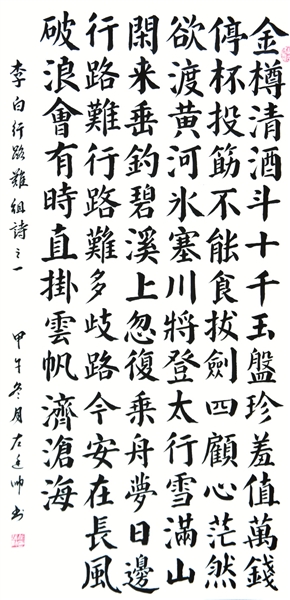 金樽清酒斗十千玉盤珍羞值萬錢
停杯投筯不能食拔劍四顧心茫然
欲渡黄河氷塞川將登太行雪滿山
閑来垂釣碧溪上忽復乘舟夢日邊
行路難行路難多歧路今安在長風
破浪會有時直掛雲帆濟滄海
李白行路難組詩之一
甲午冬月左书